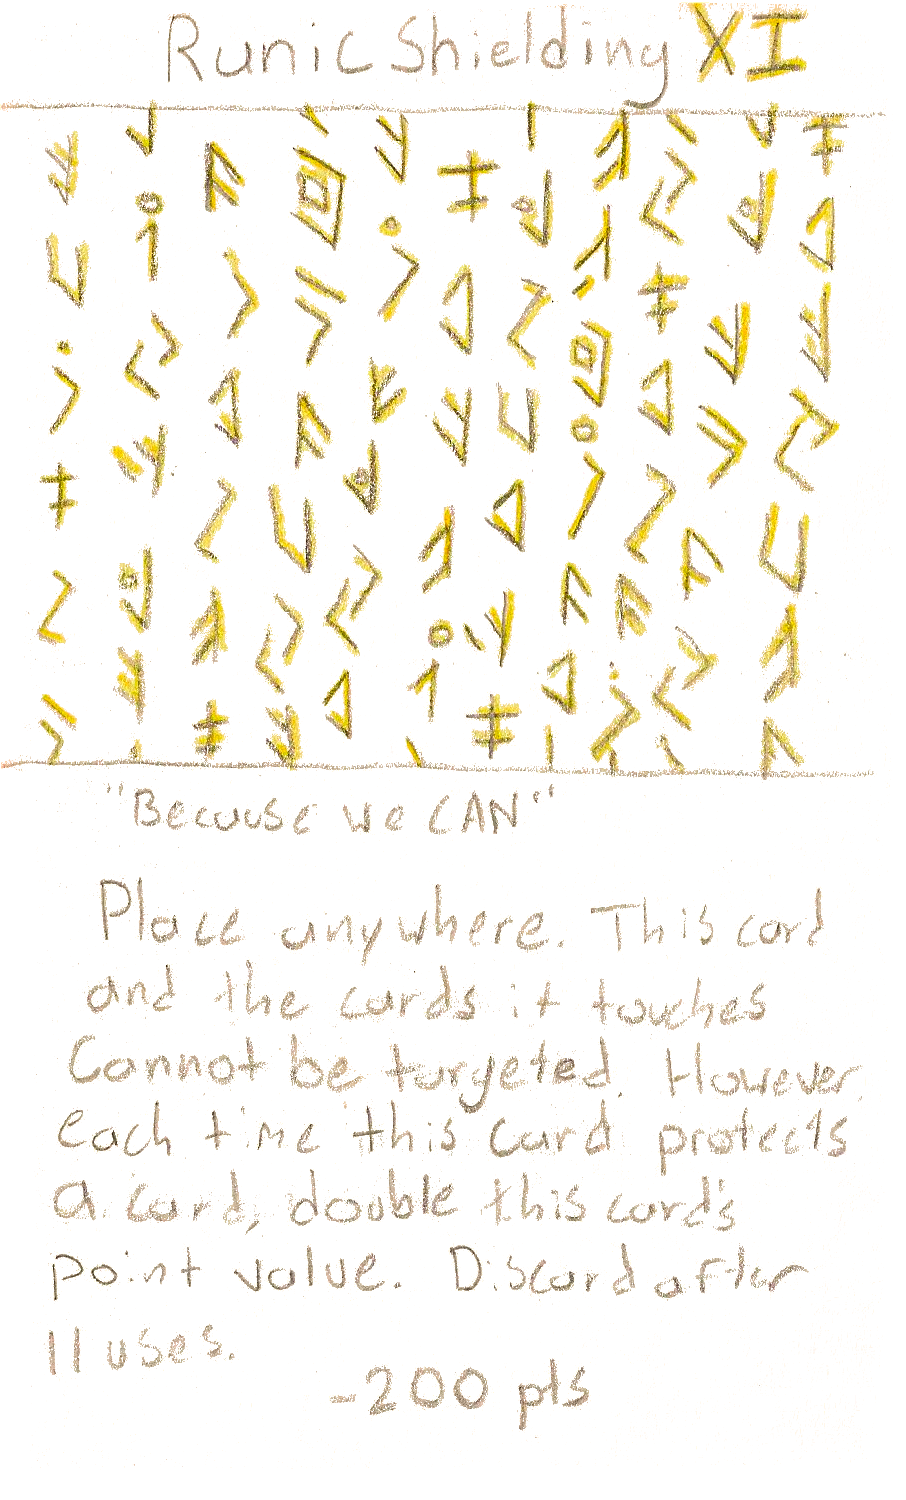 Runic Shielding XI
"Because we CAN"
Place anywhere. This card
and the cards it touches
Cannot be targeted. However,
each time this card protects
a card, double this card's
point value. Discard after
11 uses.
-200 pts